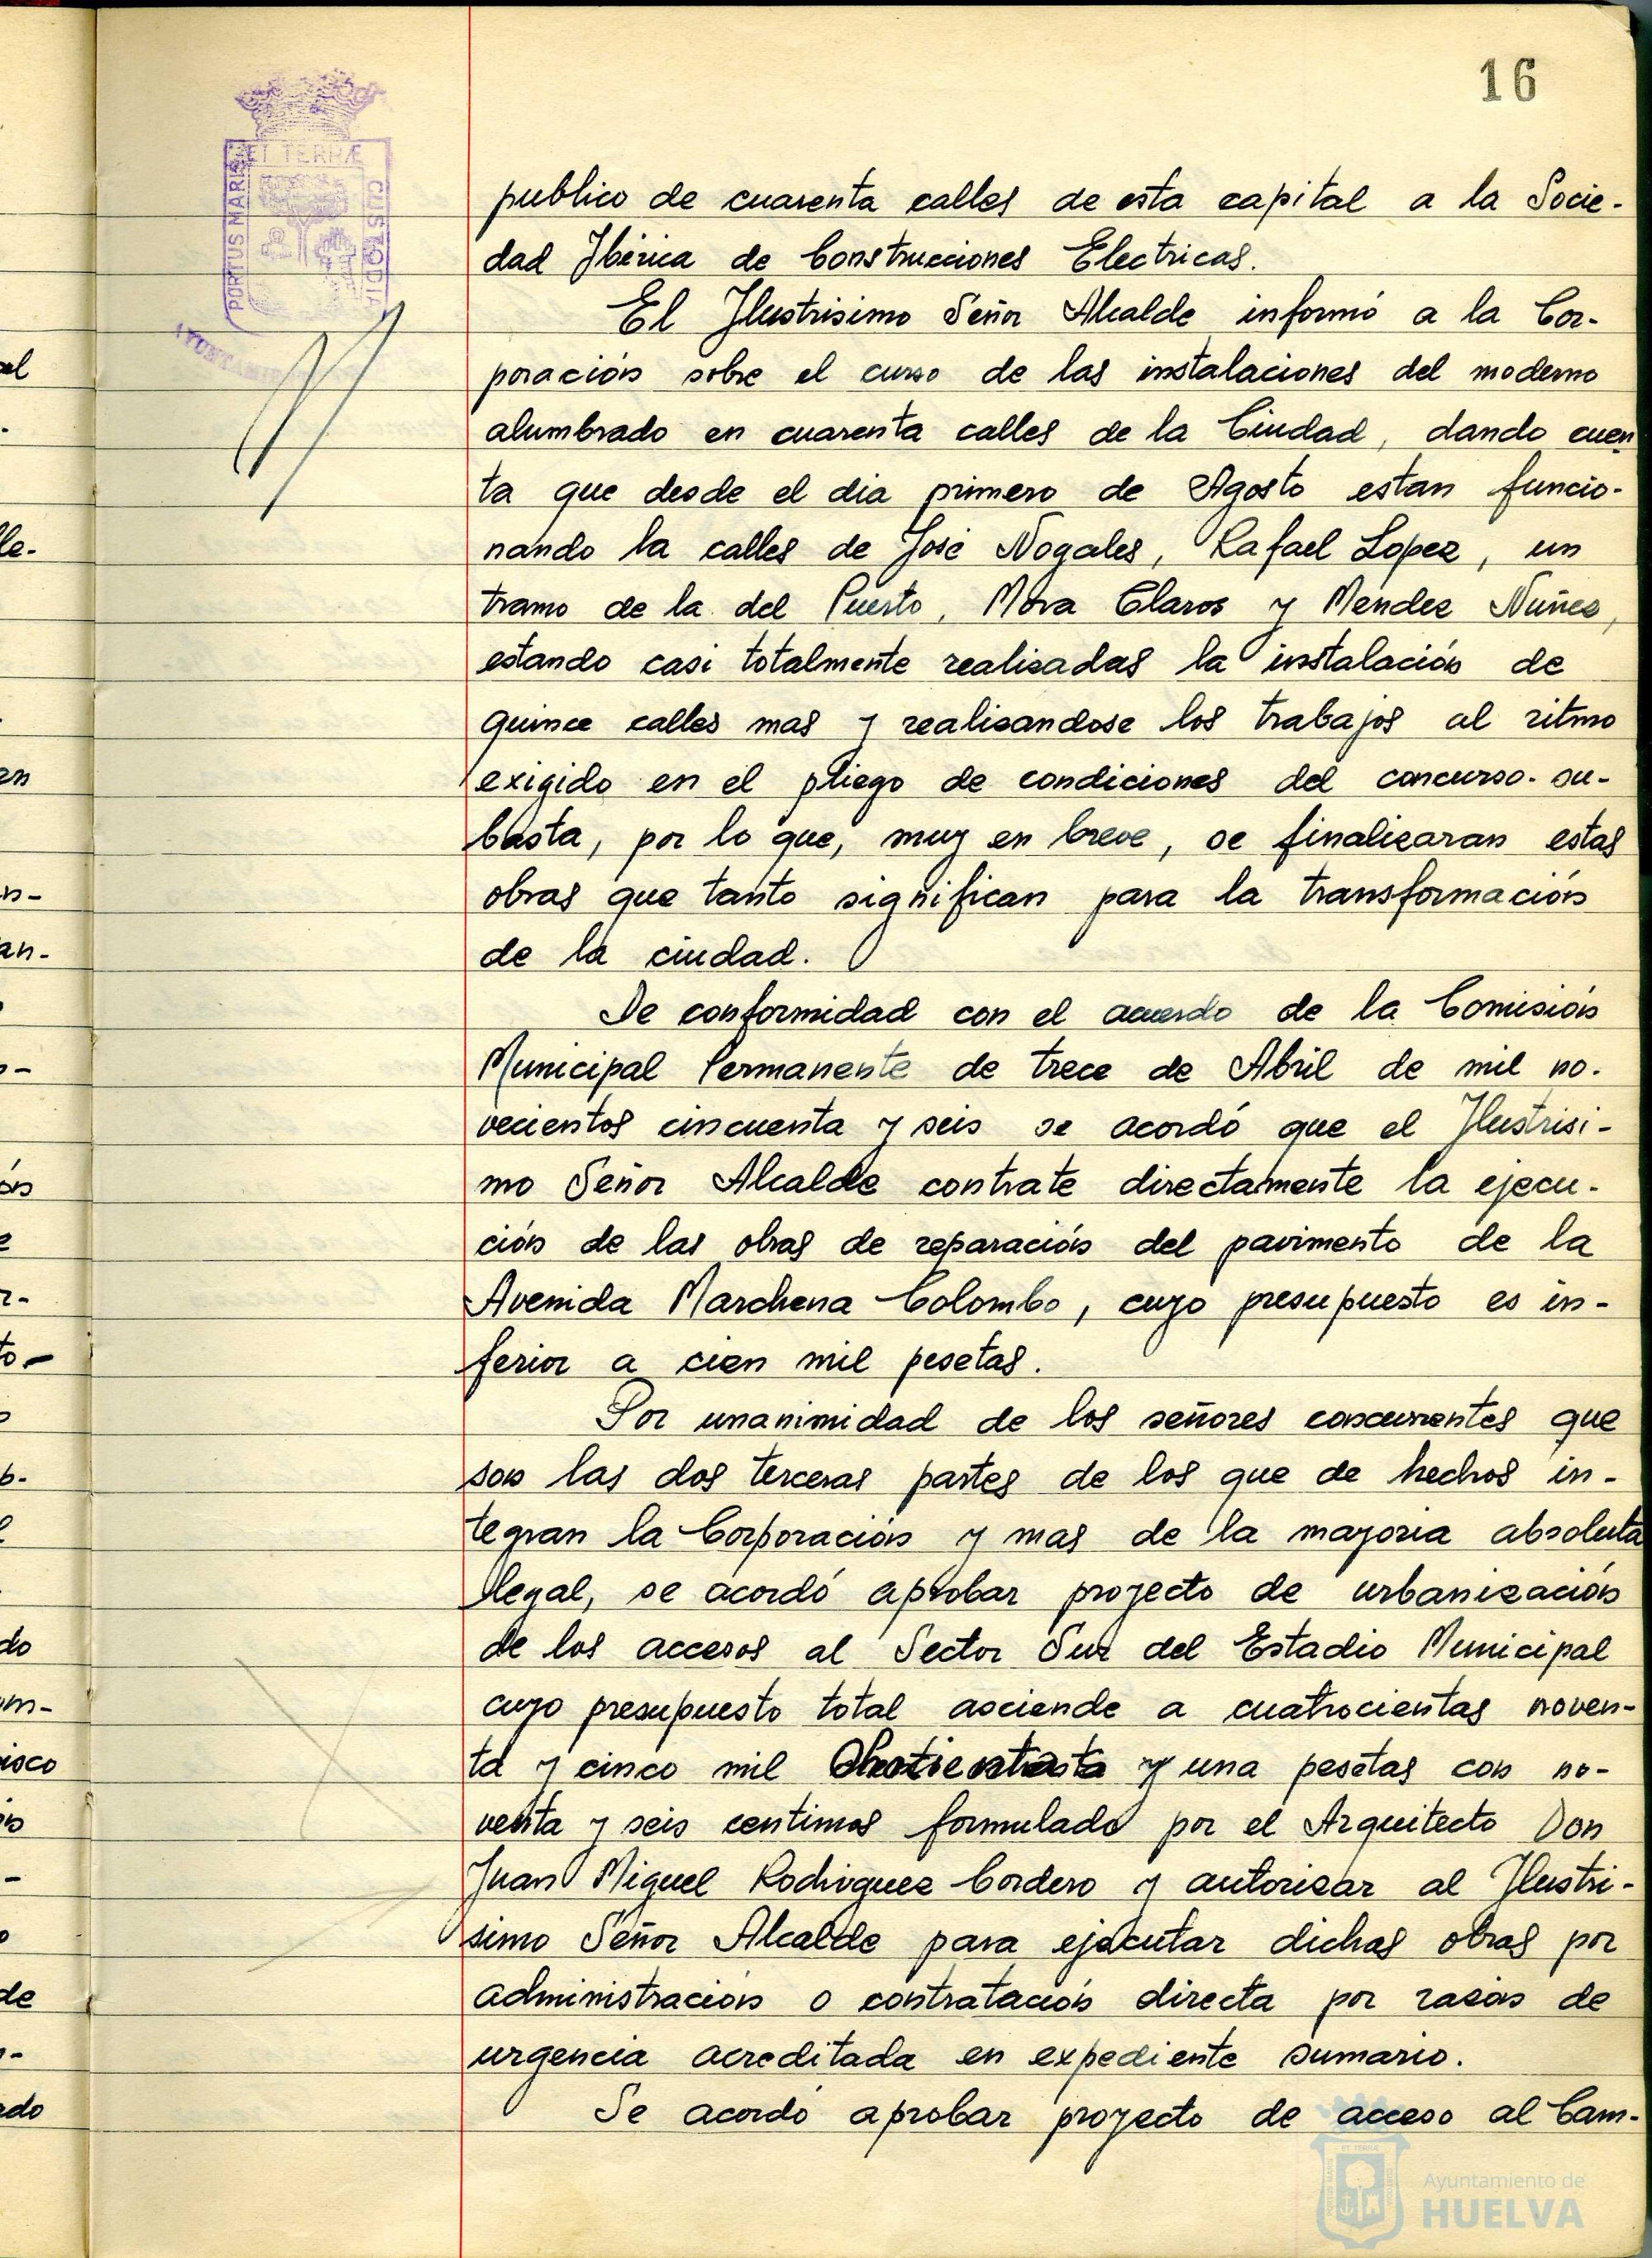 16
ET TERRÆ
PORTUS MARIS
CUSTODIA
AYUNTAMIE
publico de cuarenta calles de esta capital a la Socie-
dad Ibérica de Construcciones Electricas.
El Ilustrisimo Señor Alcalde informó a la Cor-
poración sobre el curso de las instalaciones del moderno
alumbrado en cuarenta calles de la Ciudad, dando cuen
ta que desde el dia primero de Agosto estan funcio-
nando la calles de José Nogales, Rafael Lopez, un
tramo de la del Puerto, Mora Claros y Mendez Nuñez,
estando casi totalmente realizadas la instalación de
quince calles mas y realizandose los trabajos al ritmo
exigido en el pliego de condiciones del concurso-su-
basta, por lo que, muy en breve, se finalizaran estas
obras que tanto significan para la transformación
de la ciudad.
De conformidad con el acuerdo de la Comisión
Municipal Permanente de trece de Abril de mil no-
vecientos cincuenta y seis se acordó que el Ilustrisi-
mo Señor Alcalde contrate directamente la ejecu-
ción de las obras de reparación del pavimento de la
Avenida Marchena Colombo, cuyo presupuesto es in-
ferior a cien mil pesetas.
Por unanimidad de los señores concurrentes que
son las dos terceras partes de los que de hechos in-
tegran la Corporación y mas de la mayoria absoluta
legal, se acordó aprobar proyecto de urbanización
de los accesos al Sector Sur del Estadio Municipal
cuyo presupuesto total asciende a cuatrocientas noven-
ta y cinco mil y una pesetas con no-
venta y seis centimos formulado por el Arquitecto Don
Juan Miguel Rodriguez Cordero y autorizar al Ilustri-
simo Señor Alcalde para ejecutar dichas obras por
administración o contratación directa por razón de
urgencia acreditada en expediente sumario.
Se acordó aprobar proyecto de acceso al Cam-
Ayuntamiento de
HUELVA